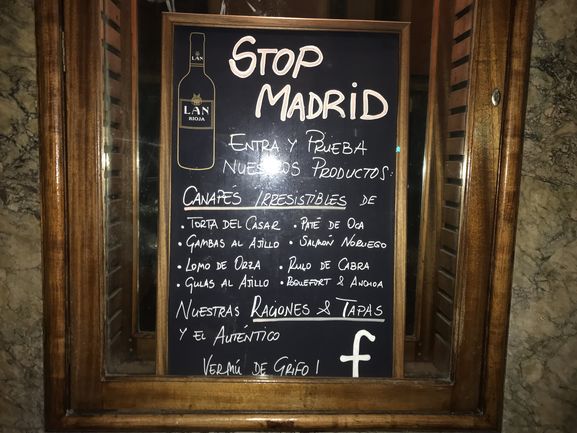 LAN
LAN
RIOJA
STOP
MADRID
ENTRA Y PRUEBA
NUESTROS PRODUCTOS:
CANAPÉS IRRESISTIBLES DE
• TORTA DEL CASAR • PATÉ DE OCA
• GAMBAS AL AJILLO • SALMÓN NORUEGO
• LOMO DE ORZA • RULO DE CABRA
• GULAS AL AJILLO • ROQUEFORT & ANCHOA
NUESTRAS RACIONES & TAPAS
Y EL AUTÉNTICO
VERMÚ DE GRIFO!
f